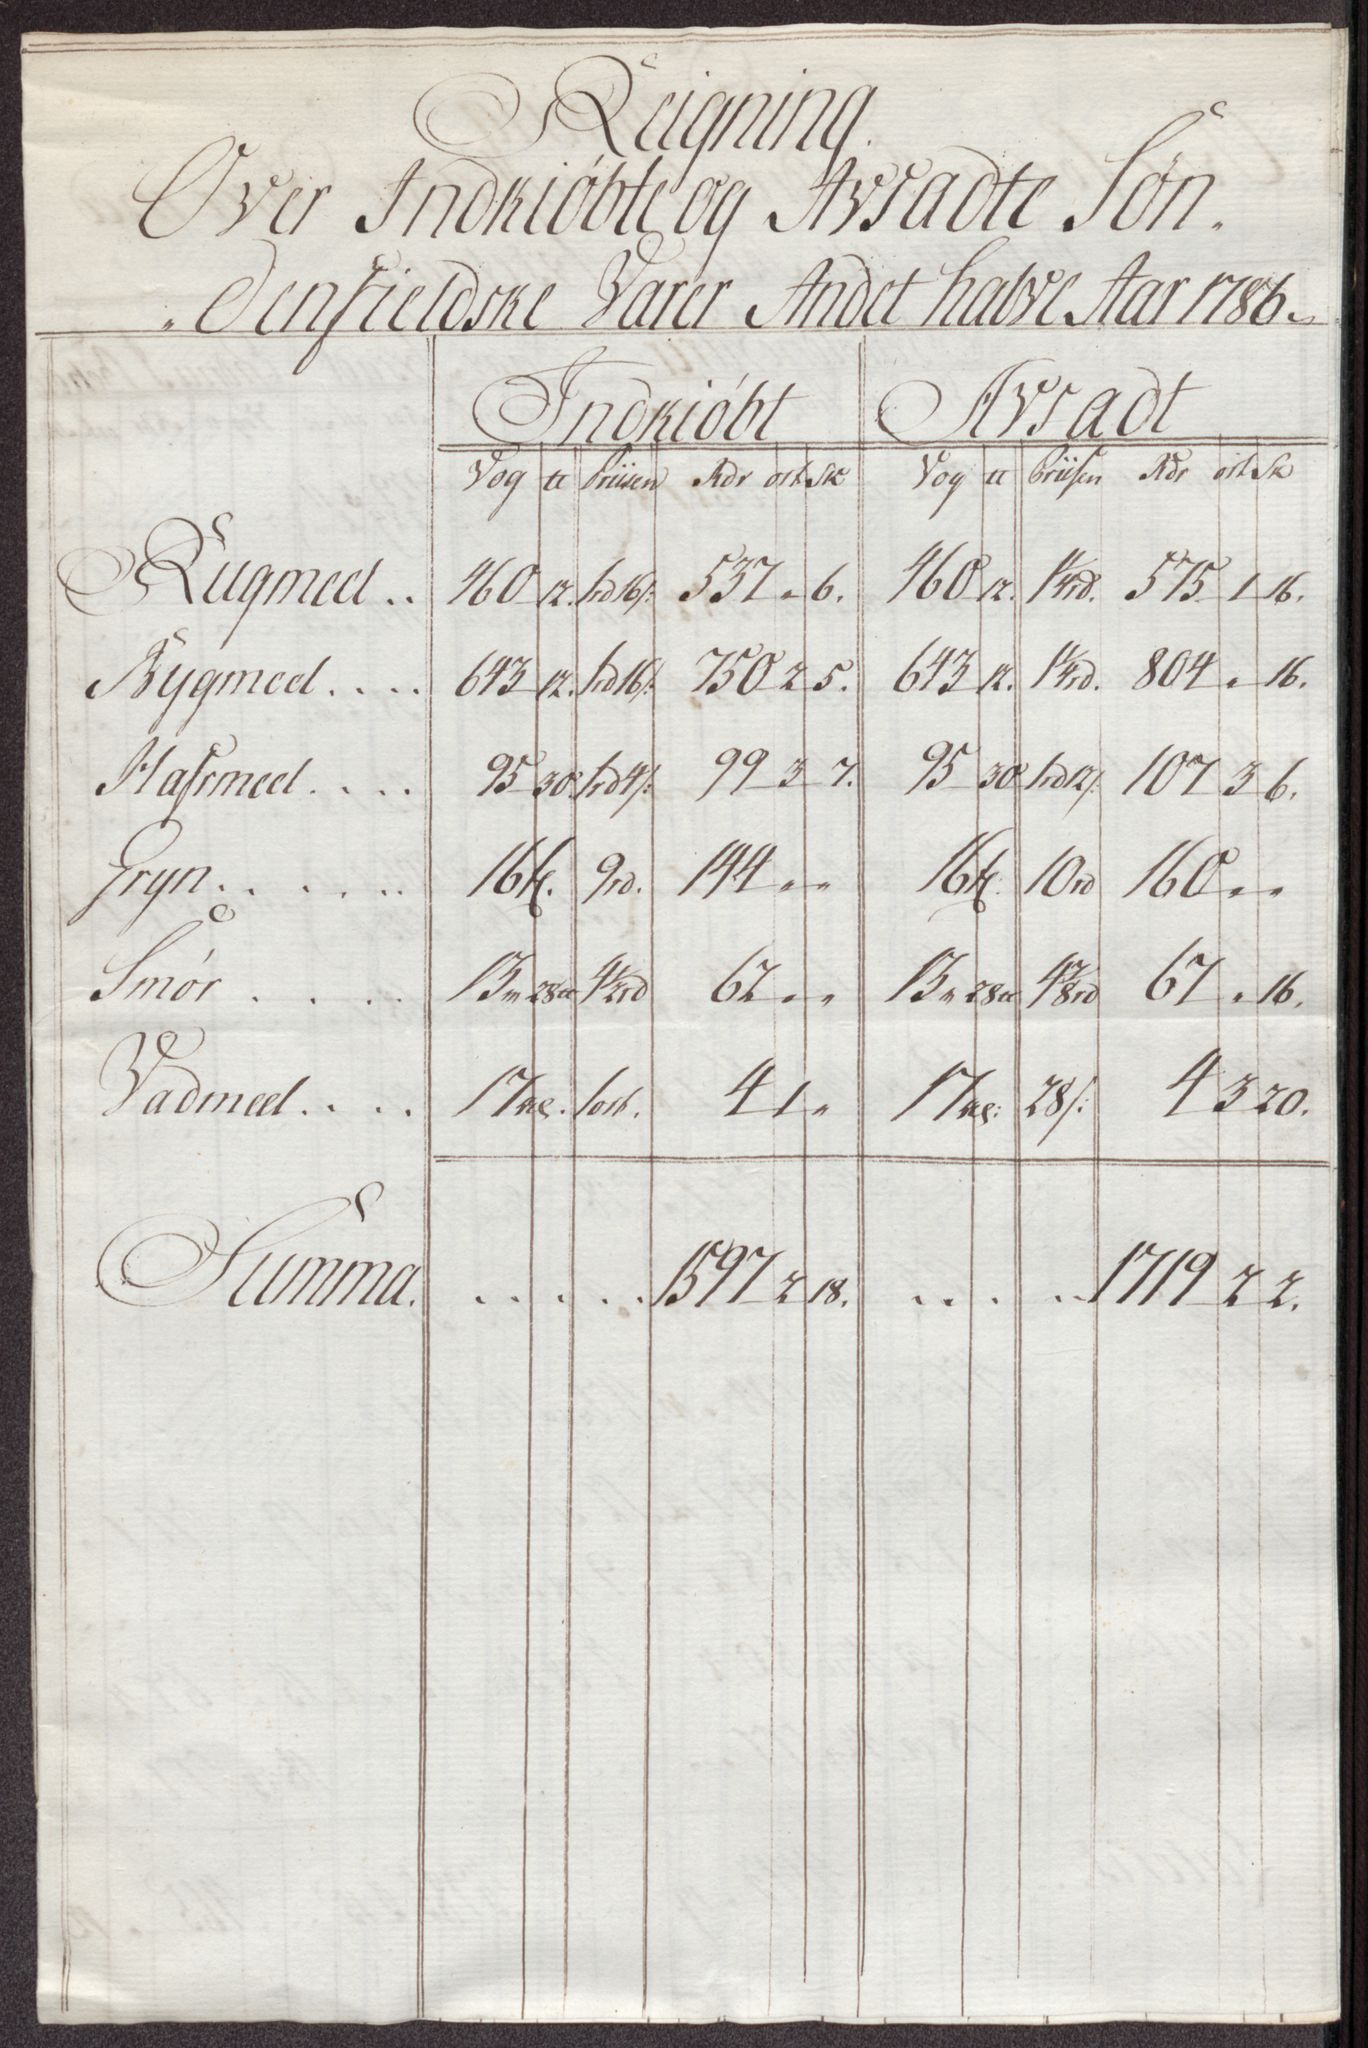 Reigning.
Over Indkiöbte og Avsadte Søn.
denfieldske Varer Andet halve Aar 1786.
Indkiöbt Avsadt
Vog ℔ Priisen Rdr ort Sk Vog ℔ Priisen Rdr ort Sk
Rugmeel . . 460 12. 1rd 16/: 537 „ 6. 460 12. 1¼rd. 575 1 16.
Bygmeel . . . . 643 12. 1rd 16/: 750 2 5. 643 12. 1¼rd. 804 „ 16.
Hafrmeel . . . . 95 30 1rd 4/: 99 3 7. 95 30 1rd 12/: 107 3 6.
Gryn . . . . . . 16 9rd. 144 „ „ 16 10rd 160 „ „
Smør . . . . 13 „ 28 ℔ 4½rd 62 „ „ 13 „ 28 ℔ 4⅞rd 67 „ 16.
Vadmeel . . . . 17 al. 1 ort. 4 1 „ 17 al: 28/: 4 3 20.
Summa. . . . . . 1597 2 18. . . . . . 1719 2 2.